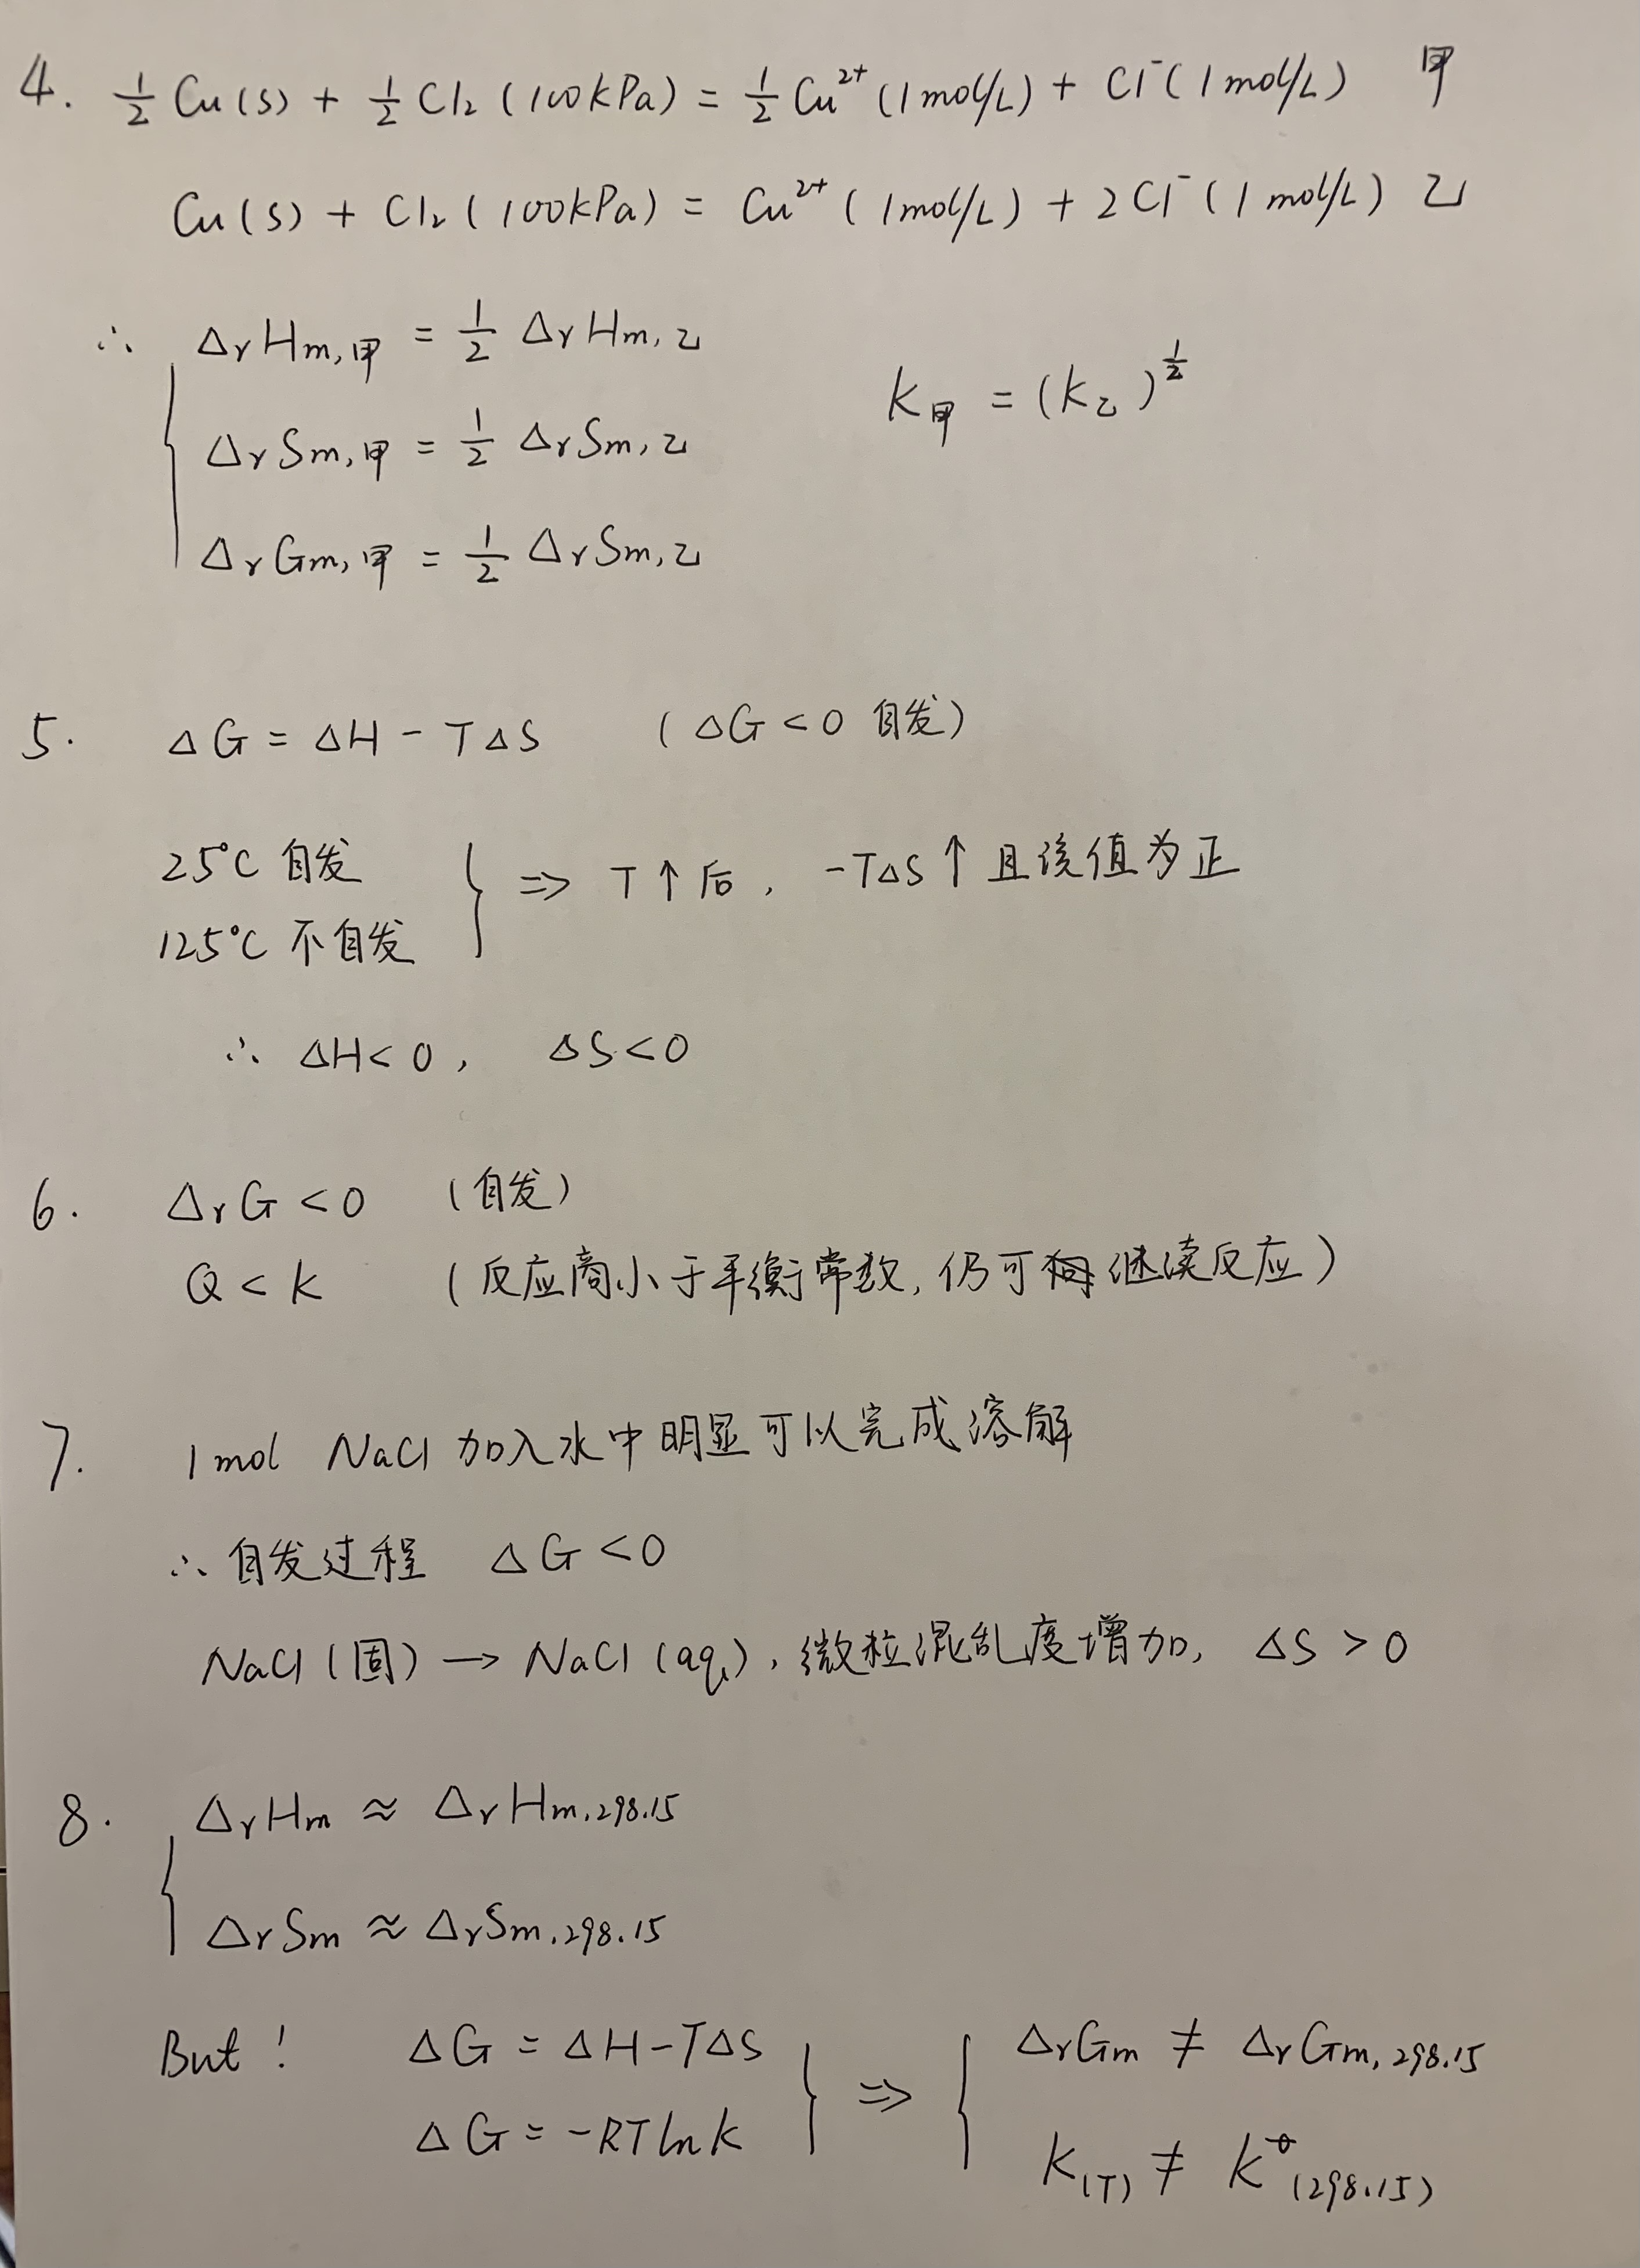 4. ½ Cu(s) + ½ Cl₂(100kPa) = ½ Cu²⁺(1mol/L) + Cl⁻(1mol/L) 甲
Cu(s) + Cl₂(100kPa) = Cu²⁺(1mol/L) + 2Cl⁻(1mol/L) 乙
∴ ΔrHm,甲 = ½ ΔrHm,乙
K甲 = (K乙)^½
ΔrSm,甲 = ½ ΔrSm,乙
ΔrGm,甲 = ½ ΔrSm,乙
5. ΔG = ΔH - TΔS (ΔG<0 自发)
25℃ 自发
125℃ 不自发
⇒ T↑后, -TΔS↑且该值为正
∴ ΔH<0, ΔS<0
6. ΔrG<0 (自发)
Q<K (反应商小于平衡常数,仍可继续反应)
7. 1mol NaCl 加入水中明显可以完成溶解
∴ 自发过程 ΔG<0
NaCl(固) → NaCl(aq), 微粒混乱度增加, ΔS>0
8. ΔrHm ≈ ΔrHm,298.15
ΔrSm ≈ ΔrSm,298.15
But! ΔG = ΔH-TΔS
ΔG = -RTlnK
⇒ ΔrGm ≠ ΔrGm,298.15
K(T) ≠ K^θ(298.15)